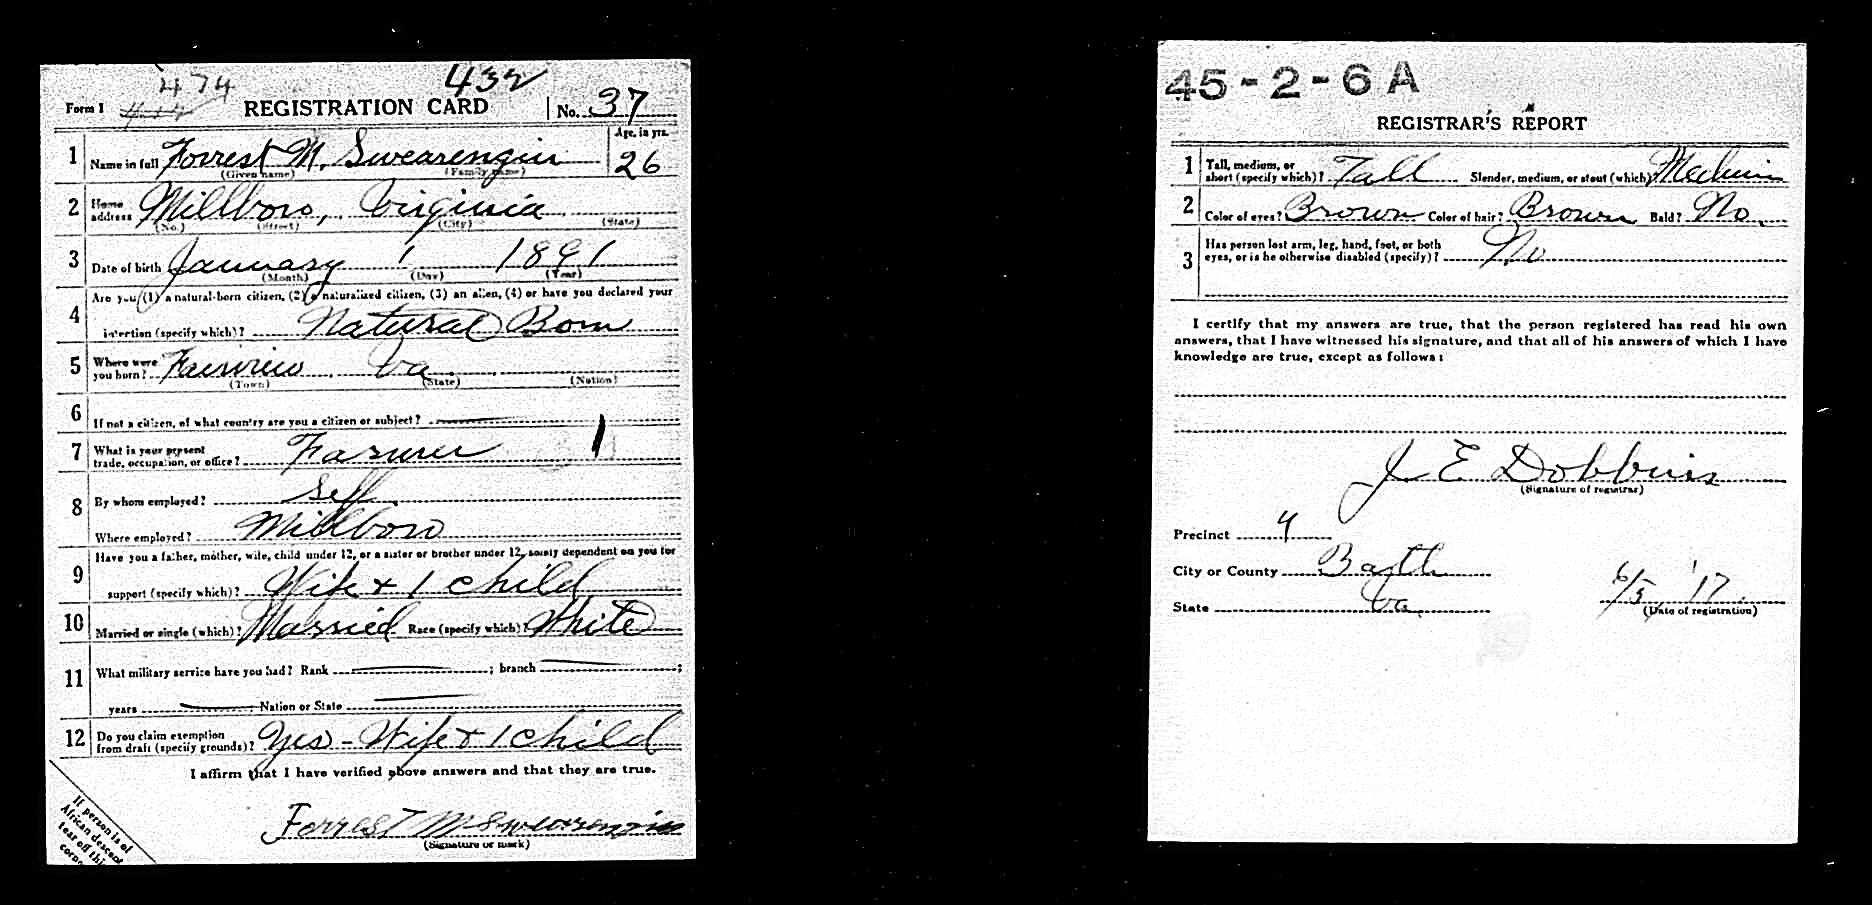 474 432
Form 1 412 REGISTRATION CARD No. 37
1 Name in full Forrest M. Swearengin Age, in yrs. 26
(Given name) (Family name)
2 Home address Millboro, Virginia
(No.) (Street) (City) (State)
3 Date of birth January 1 1891
(Month) (Day) (Year)
Are you (1) a natural-born citizen, (2) a naturalized citizen, (3) an alien, (4) or have you declared your
4 intention (specify which)? Natural Born
5 Where were you born? Fairview Va
(Town) (State) (Nation)
6 If not a citizen, of what country are you a citizen or subject?
7 What is your present trade, occupation, or office? Farmer 1
8 By whom employed? Self
Where employed? Millboro
Have you a father, mother, wife, child under 12, or a sister or brother under 12, solely dependent on you for
9 support (specify which)? Wife + 1 child
10 Married or single (which)? Married Race (specify which)? White
11 What military service have you had? Rank ; branch ;
years ; Nation or State
12 Do you claim exemption from draft (specify grounds)? Yes - Wife + 1 child
I affirm that I have verified above answers and that they are true.
Forrest M Swearengin
(Signature or mark)
If person is of
African descent
tear off this
corne
45-2-6 A
REGISTRAR'S REPORT
1 Tall, medium, or short (specify which)? Tall Slender, medium, or stout (which)? Medium
2 Color of eyes? Brown Color of hair? Brown Bald? No.
3 Has person lost arm, leg, hand, foot, or both eyes, or is he otherwise disabled (specify)? No
I certify that my answers are true, that the person registered has read his own
answers, that I have witnessed his signature, and that all of his answers of which I have
knowledge are true, except as follows:
J E Dobbins
(Signature of registrar)
Precinct 4
City or County Bath
State Va. 6/5/'17.
(Date of registration)